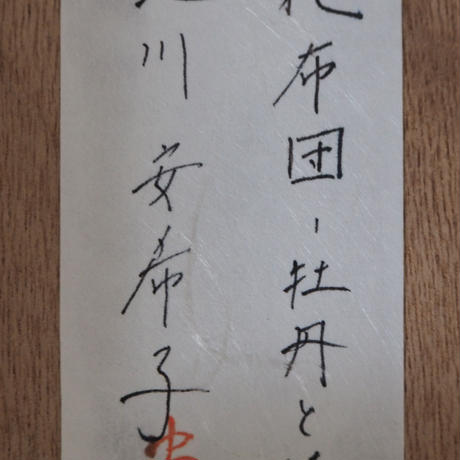 布団-牡丹と
川 安希子